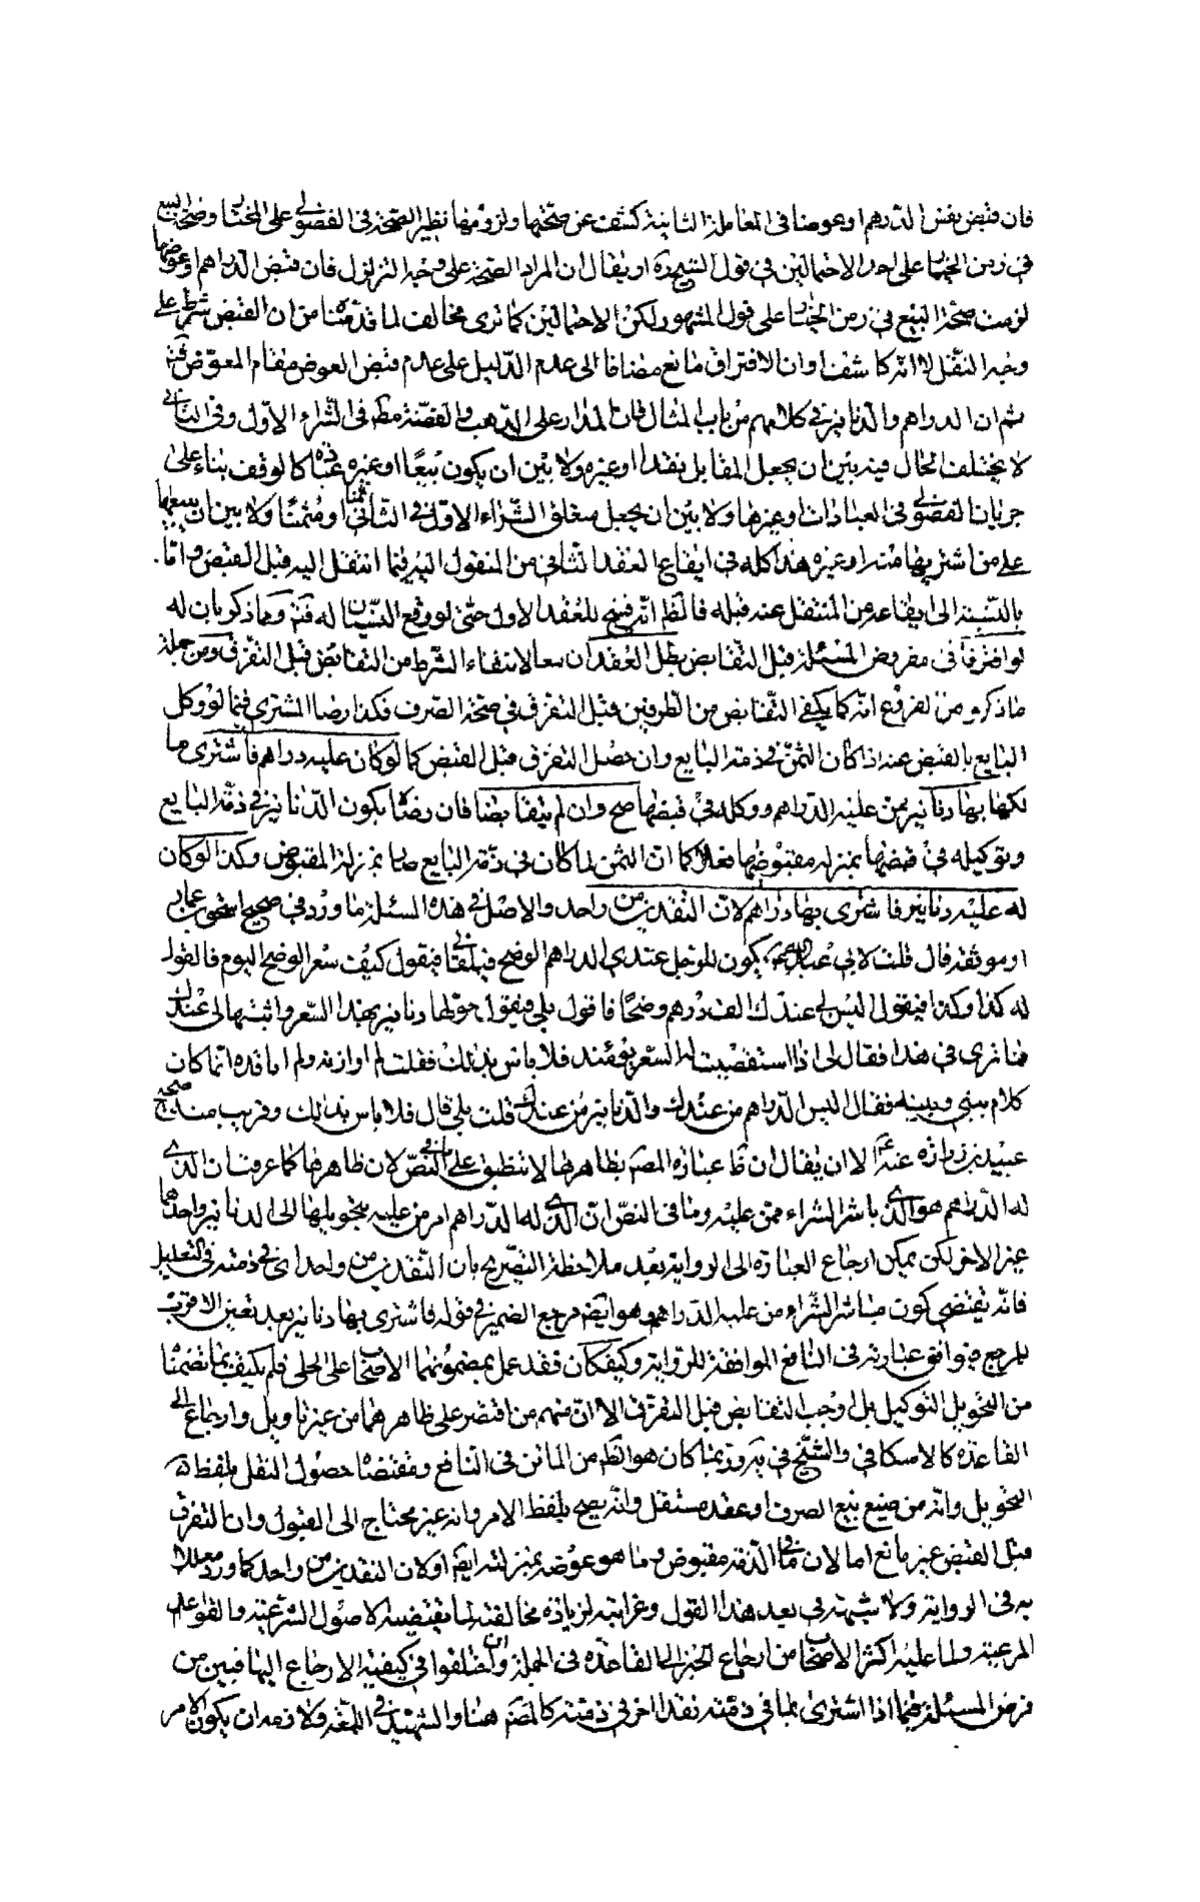 فان قبض نفس الدّرهم او عوضها فی المعاملة الثانیة کشف عن صحّتها ولزومها نظیر الصحّة فی الفضولی علی المختار وصحّة البیع
فی زمن الخیار علی احد الاحتمالین فی قول الشیخ ره او یقال ان المراد الصحة علی وجه التزلزل فان قبض الدّراهم او عوضها
لزمت صحّة البیع فی زمن الخیار علی قول المشهور لکن الاحتمالین کما تری مخالف لما قدّمناه من ان القبض شرط علی
وجه النّقل لا انّه کاشف وان الافتراق مانع مضافا الی عدم الدّلیل علی عدم قبض العوض مقام المعوّض
ثم ان الدراهم والدّنانیر فی کلامهم من باب المثال فان المدار علی الذّهب والفضّة مط فی الشّراء الاوّل وفی الثانی
لا یختلف الحال فیه بین ان یجعل المقابل نقدا او غیره ولا بین ان یکون بیعًا او غیره کالوقف بناء علی
جریان الفضولی فی العبادات او غیرها ولا بین ان یجعل متعلق الشّراء الاوّل فی الثّانی ثمنا او مثمنًا ولا بین ان یبیعها
علی من اشتریها منه او غیره هذا کله فی ایقاع العقد الثانی من المنقول الیه فیما انتقل الیه قبل القبض وامّا
بالنّسبة الی ایقاعه من المنتقل عنه قبله فالظ انّه فسخ للعقد الاول حتّی لو وقع النسیان له فتم ومما ذکر بان له
لو افترقا فی مفروض المسئلة قبل التّقابض بطل العقدان معا لانتفاء الشّرط من التقابض قبل التفرّق ومن جملة
ما ذکروه من الفروع انّه کما یکفی التّقابض من الطرفین قبل التفرّق فی صحّة الصّرف فکذا رضا المشتری فیما لو وکل
البایع بالقبض عنه اذا کان الثمن فی ذمة البایع وان حصل التفرّق قبل القبض کما لو کان علیه دراهم فاشتری
بها دنانیر ممّن علیه الدّراهم ووکله فی قبضها صح وان لم یتقابضا فان رضاه بکون الدّنانیر فی ذمّة البایع
وتوکیله فی قبضها بمنزلة مقبوضها فعلا کما ان الثمن لما کان فی ذمّة البایع صار بمنزلة المقبوض وکذا لو کان
له علیه دنانیر فاشتری بها دراهم لانّ النّقدین من واحد والاصل فی هذه المسئلة ما ورد فی صحیح اسحق بن عمار
او موثقه قال قلت لابی عبدالله ع یکون للرّجل عندی الدراهم الوضح فیلقانی فیقول کیف سعر الوضح الیوم فاقول
له کذا وکذا فیقول الیس لی عندک الف درهم وضحًا فاقول بلی فیقول حوّلها دنانیر بهذا السّعر واثبتها لی عندک
فما تری فی هذا فقال لی اذا استقصیت له السّعر یومئذ فلا باس بذلک فقلت لم اوازنه ولم اناقده انّما کان
کلام بینی وبینه فقال الیس الدّراهم من عندک والدّنانیر من عندک قلت بلی قال فلا باس بذلک وقریب منه صحیح
عبید بن زرارة عنه ع الا ان یقال ان عبارة المصم بظاهرها لا تنطبق علی ما فی النّصّ لان ظاهرها کما عرفت ان الذی
له الدّراهم هو الذی باشر الشراء ممّن علیه وما فی النصّ انّ الذی له الدّراهم امر من علیه بتحویلها الی الدنانیر واحدهما
غیر الاخر لکن یمکن ارجاع العبارة الی الروایة بعید ملاحظة التّصریح بان النّقدین من واحد ای فی ذمته فی التعلیل
فانه یقتضی کون مباشر الشّراء من علیه الدّراهم وهو ایضا مرجع الضمیر فی قوله فاشتری بها دنانیر بعد تعیّن الاقرب
للمرجع فیوافق عبارته فی النافع الموافقة للروایة وکیفکان فقد عمل بمضمونهما الاصحاب عدا الحلی فلم یکتف بما تضمنتا
من التحویل التوکیل بل اوجب التقابض قبل التفرّق الا انّ منهم من اقتصر علی ظاهرهما من غیر تاویل وارجاع الی
القاعدة کالاسکافی والشّیخ فی یه وربما کان هو الظ من الماتن فی النافع ومقتضاه حصول النقل بلفظ
التحویل وانّه من صیغ بیع الصرف او عقد مستقل وانّه یصحّ بلفظ الامر وانّه غیر محتاج الی القبول وان التفرّق
قبل القبض غیر مانع اما لان ما فی الذّمّة مقبوض وما هو عوضه بمنزلته ایضا او لان النقدین من واحد کما ورد معلّلا
به فی الروایة ولا شبهة فی بعد هذا القول وغرابته لزیادة مخالفته لما یقتضیه الاصول الشرعیّة والقواعد
المرعیّة ولما علیه اکثر الاصحاب من ارجاع الخبر الی القاعدة فی الجملة وان اختلفوا فی کیفیّة الارجاع الیها فبین من
فرض المسئلة فیما اذا اشتری بما فی ذمّته نقدا اخر فی ذمّته کالمصم هنا والشّهید فی اللمعة ولا بد ان یکون الامر